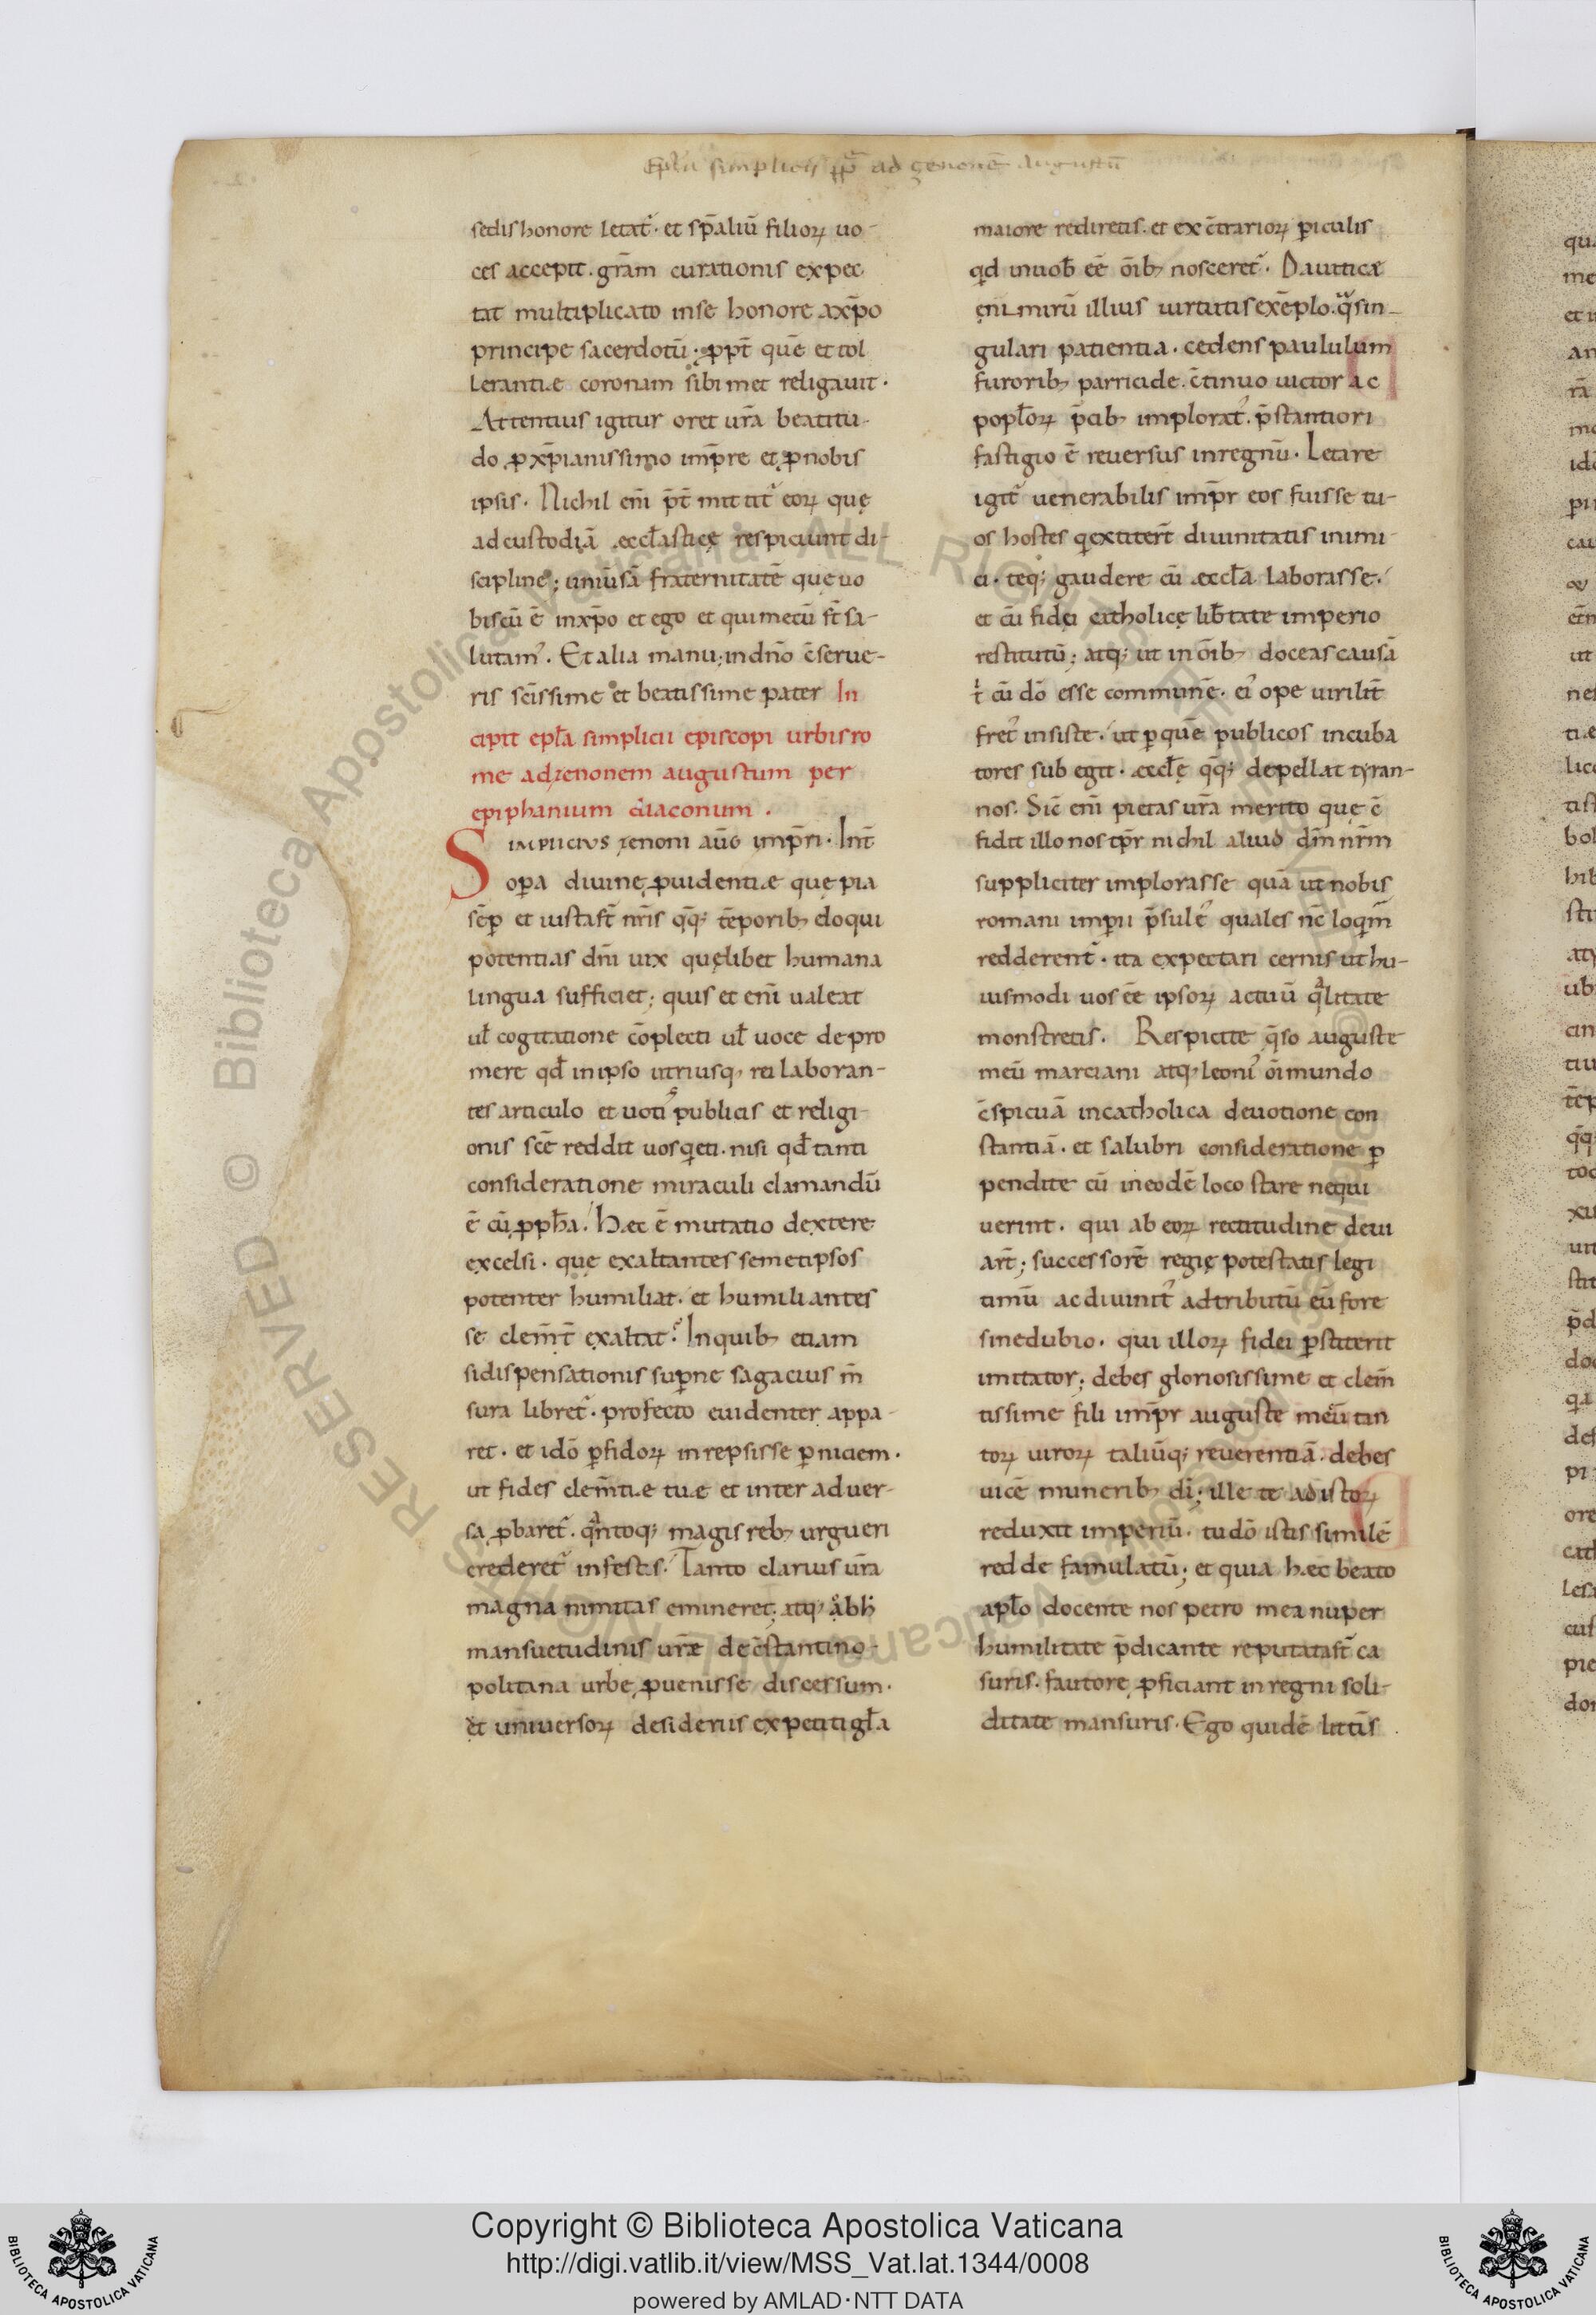 Ep̄la simplicii p̄p̄ ad zenonē Augustū
sedis honore letat᷑. et sp̄aliū filioꝝ uo-
ces accepit. gr̄am curationis expec
tat multiplicato inse honore axp̄o
principe sacerdotū; ꝓpt̄ quē et tol
lerantiæ coronam sibimet religauit.
Attentius igitur oret ur̄a beatitu-
do ꝓ xp̄ianissimo imp̄re et ꝓnobis
ipsis. Nichil eni̅ p̄t̄ mittit᷑ eoꝝ quę
ad custodiā æccl̄asticę respiciunt di-
scipline; uniu̅sā fraternitatē que uo
biscū ē inxp̄o et ego et qui mecū st̄ sa-
lutam᷒. Et alia manu; indn̄o c̄serue-
ris sc̄issime et beatissime pater In
cipit epl̄a simplicii episcopi urbis ro
me adzenonem augustum per
epiphanium diaconum.
SIMPLICIVS zenoni aūg imp̄ri. Int̄
oꝑa diuinę ꝓuidentiæ quę pia
sēꝑ et iusta st̄ nr̄is q̄q; tēporibꝫ do qui
potentias dn̄i uix quęlibet humana
lingua sufficiet; quis et eni̅ ualeat
ul̄ cogitatione cōplecti ul̄ uoce depro
mere qd̄ inipso utriusqꝫ rei laboran-
tes articulo et uoti᷒ publicis et religi-
onis sc̄e reddit uos qieti. nisi qd̄ tanti
consideratione miraculi clamandū
ē cū ꝓph̄a. Hæc ē mutatio dextere
excelsi. quę exaltantes semetipsos
potenter humiliat. et humiliantes
se clem̄t̄ exaltat. Inquibꝫ etiam
si dispensationis supne sagacius m̄
sura libret᷑. profecto euidenter appa-
ret. et idō ꝑfidoꝝ inrepsisse ꝑniciem.
ut fides clem̄tiæ tuæ et inter aduer-
sa ꝓbaret᷑. qn̄toq; magis rebꝫ urgueri
crederet᷑ infestis. Tanto clarius ur̄a
magna nimitas emineret. atqꝫ ab h
mansuetudinis ur̄æ de c̄stantino-
politana urbe ꝓuenisse discessum.
et uniuersoꝝ desideriis expetiti gl̄a
maiore rediretis. et ex c̄trarioꝝ ꝑiculis
qd inuob̄ eē ōibꝫ nosceret᷑. Dauitica
eni̅ mirū illius uirtutis exēplo. q̄ sin-
gulari patientia. cedens paululum
furoribꝫ parricide. c̄tinuo uictor ac
popl̄oꝝ p̄cibꝫ implorat᷒. p̄stantiori
fastigio ē reuersus inregnū. Letare
igit᷑ uenerabilis imp̄r eos fuisse tu-
os hostes qextiter̄t diuinitatis inimi-
ci. teq; gaudere cū æccl̄a laborasse.
et cū fidei catholicę lib̄tate imperio
restitutū; atq; ut in ōibꝫ doceas causā
t᷑ cū dō esse communē. ei᷒ ope uirilit̄
fret᷒ insiste. ut ꝑquē publicos incuba
tores sub egit. æccl̄ę q̄q; depellat tyran-
nos. Sic̄ eni̅ pietas ur̄a merito quę c̄
fidit illo nos tp̄r nichil aliud dm̄ nr̄m
suppliciter implorasse quā ut nobis
romani impii p̄sule᷒ quales nc̄ loqim̄
redderent᷑. ita expectari cernis ut hu-
iusmodi uos eē ipsoꝝ actuū qlitate
monstretis. Respicite q̄so auguste
meū marciani atqꝫ leoni᷒ ōi mundo
c̄spicuā incatholica deuotione con
stantiā. et salubri consideratione ꝑ
pendite cū ineodē loco stare nequi
uerint. qui ab eoꝝ rectitudine deui
ar̄t; successorē regię potestatis legi
timū ac diuinit᷒ adtributū eū fore
sinedubio. qui illoꝝ fidei ꝑstiterit
imitator; debes gloriosissime et clem̄
tissime fili imp̄r auguste meū tan
toꝝ uiroꝝ taliūq; reuerentiā. debes
uicē muneribꝫ di̅; ille te ad istoꝝ
reduxit imperiū. tu dō istis similē
redde famulatū; et quia hæc beato
apl̄o docente nos petro mea nuper
humilitate p̄dicante reputata st̄ ca
suris. fautore ꝓficiant in regni soli-
ditate mansuris. Ego quidē litt̄is
Copyright © Biblioteca Apostolica Vaticana
http://digi.vatlib.it/view/MSS_Vat.lat.1344/0008
powered by AMLAD·NTT DATA
BIBLIOTECA APOSTOLICA VATICANA
BIBLIOTECA APOSTOLICA VATICANA